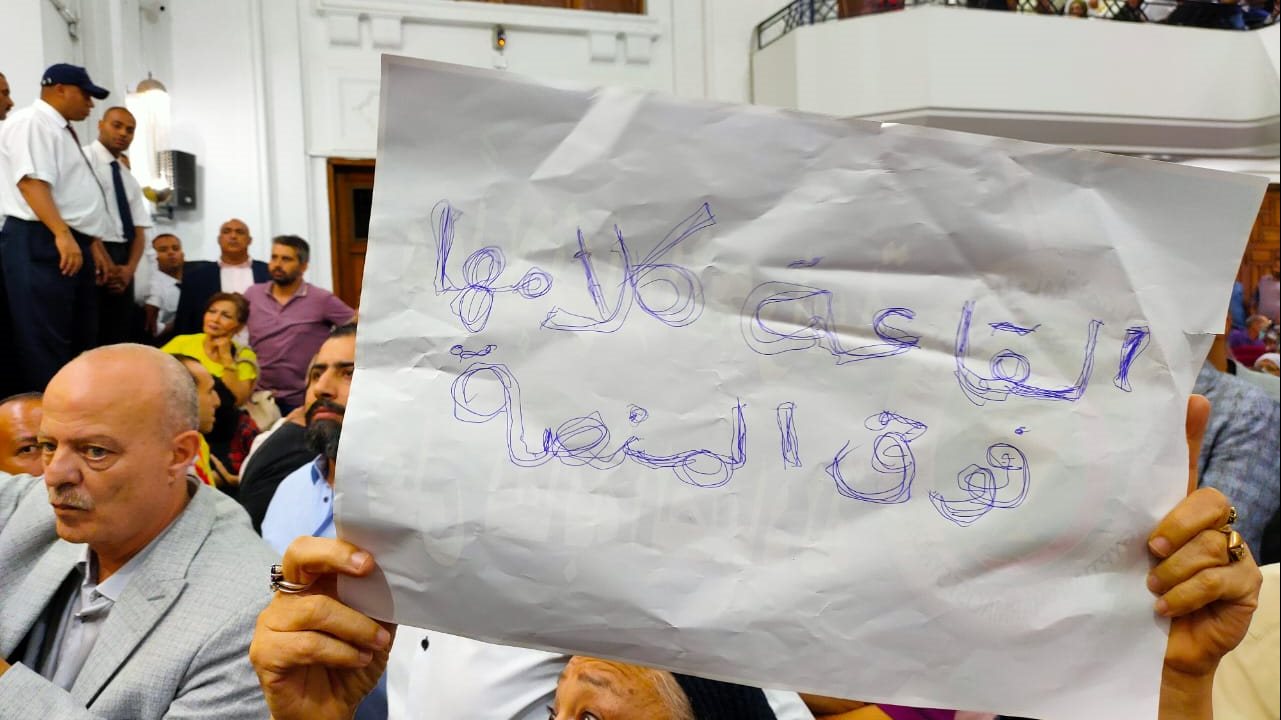 القاعة كلامها
فوق المنصة